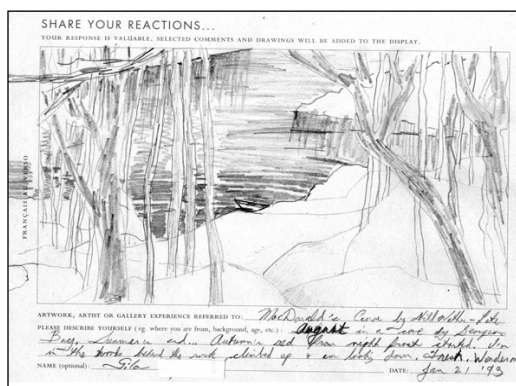 SHARE YOUR REACTIONS...
YOUR RESPONSE IS VALUABLE. SELECTED COMMENTS AND DRAWINGS WILL BE ADDED TO THE DISPLAY.
FRANÇAIS AU VERSO
ARTWORK, ARTIST OR GALLERY EXPERIENCE REFERRED TO: MacDonald's Cove by
PLEASE DESCRIBE YOURSELF (eg. where you are from, background, age, etc.): August in a cove by Georgian
Bay, Summer's end... Autumn's red from night frost started. I'm
in the rocks behind the climbed up & am looking down. Fresh.
NAME (optional): Gila
DATE: Jan 21 '93